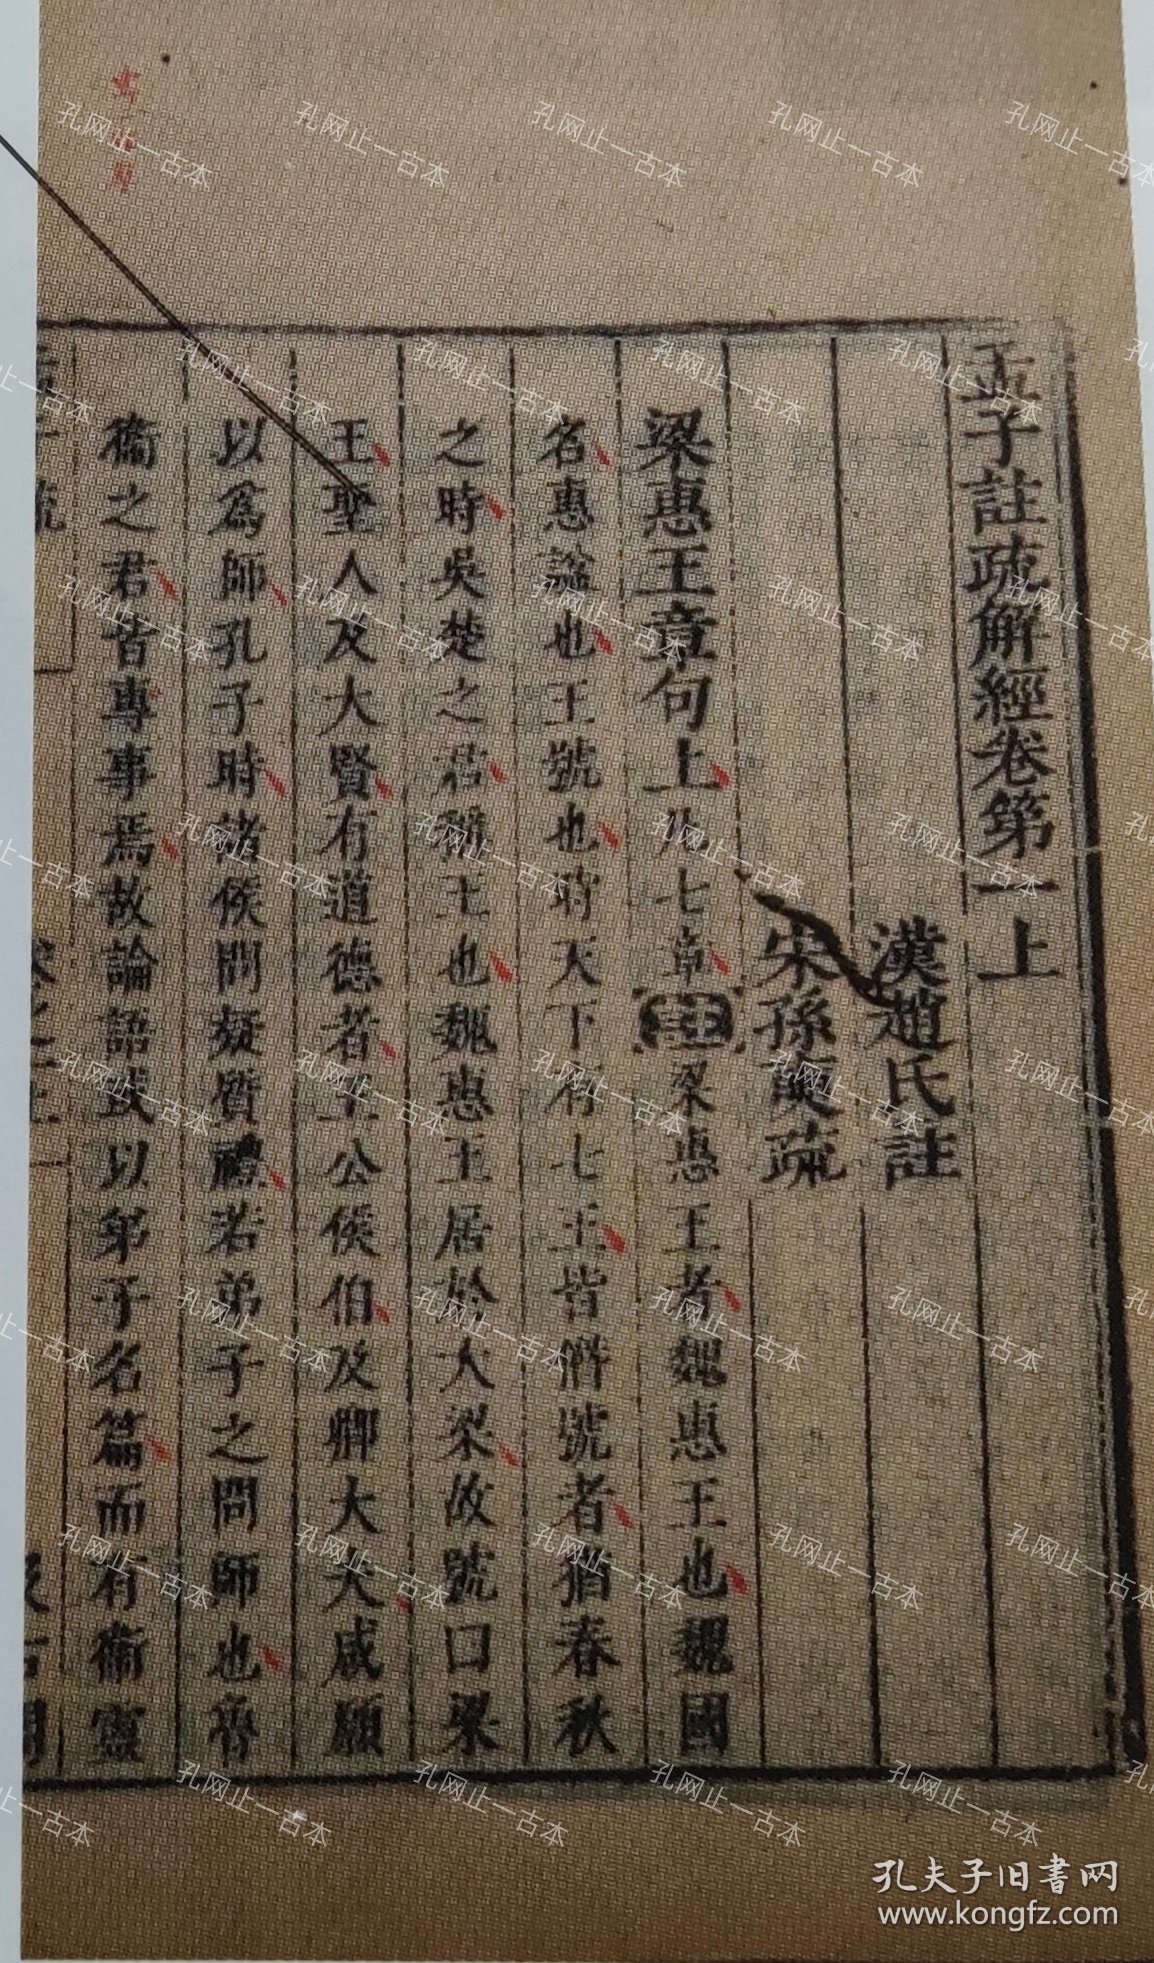 孟子註疏解經卷第一上
漢趙氏註
宋孫奭疏
梁惠王章句上凡七章註梁惠王者魏惠王也魏國
名惠諡也王號也時天下有七王皆僭號者猶春秋
之時吳楚之君稱王也魏惠王居於大梁故號曰梁
王聖人及大賢有道德者王公侯伯及卿大夫咸願
以爲師孔子時諸侯問疑質禮若弟子之問師也齊
衞之君皆專事焉故論語或以弟子名篇而有衞靈
孔夫子旧書网
www.kongfz.com
孔网止一古本